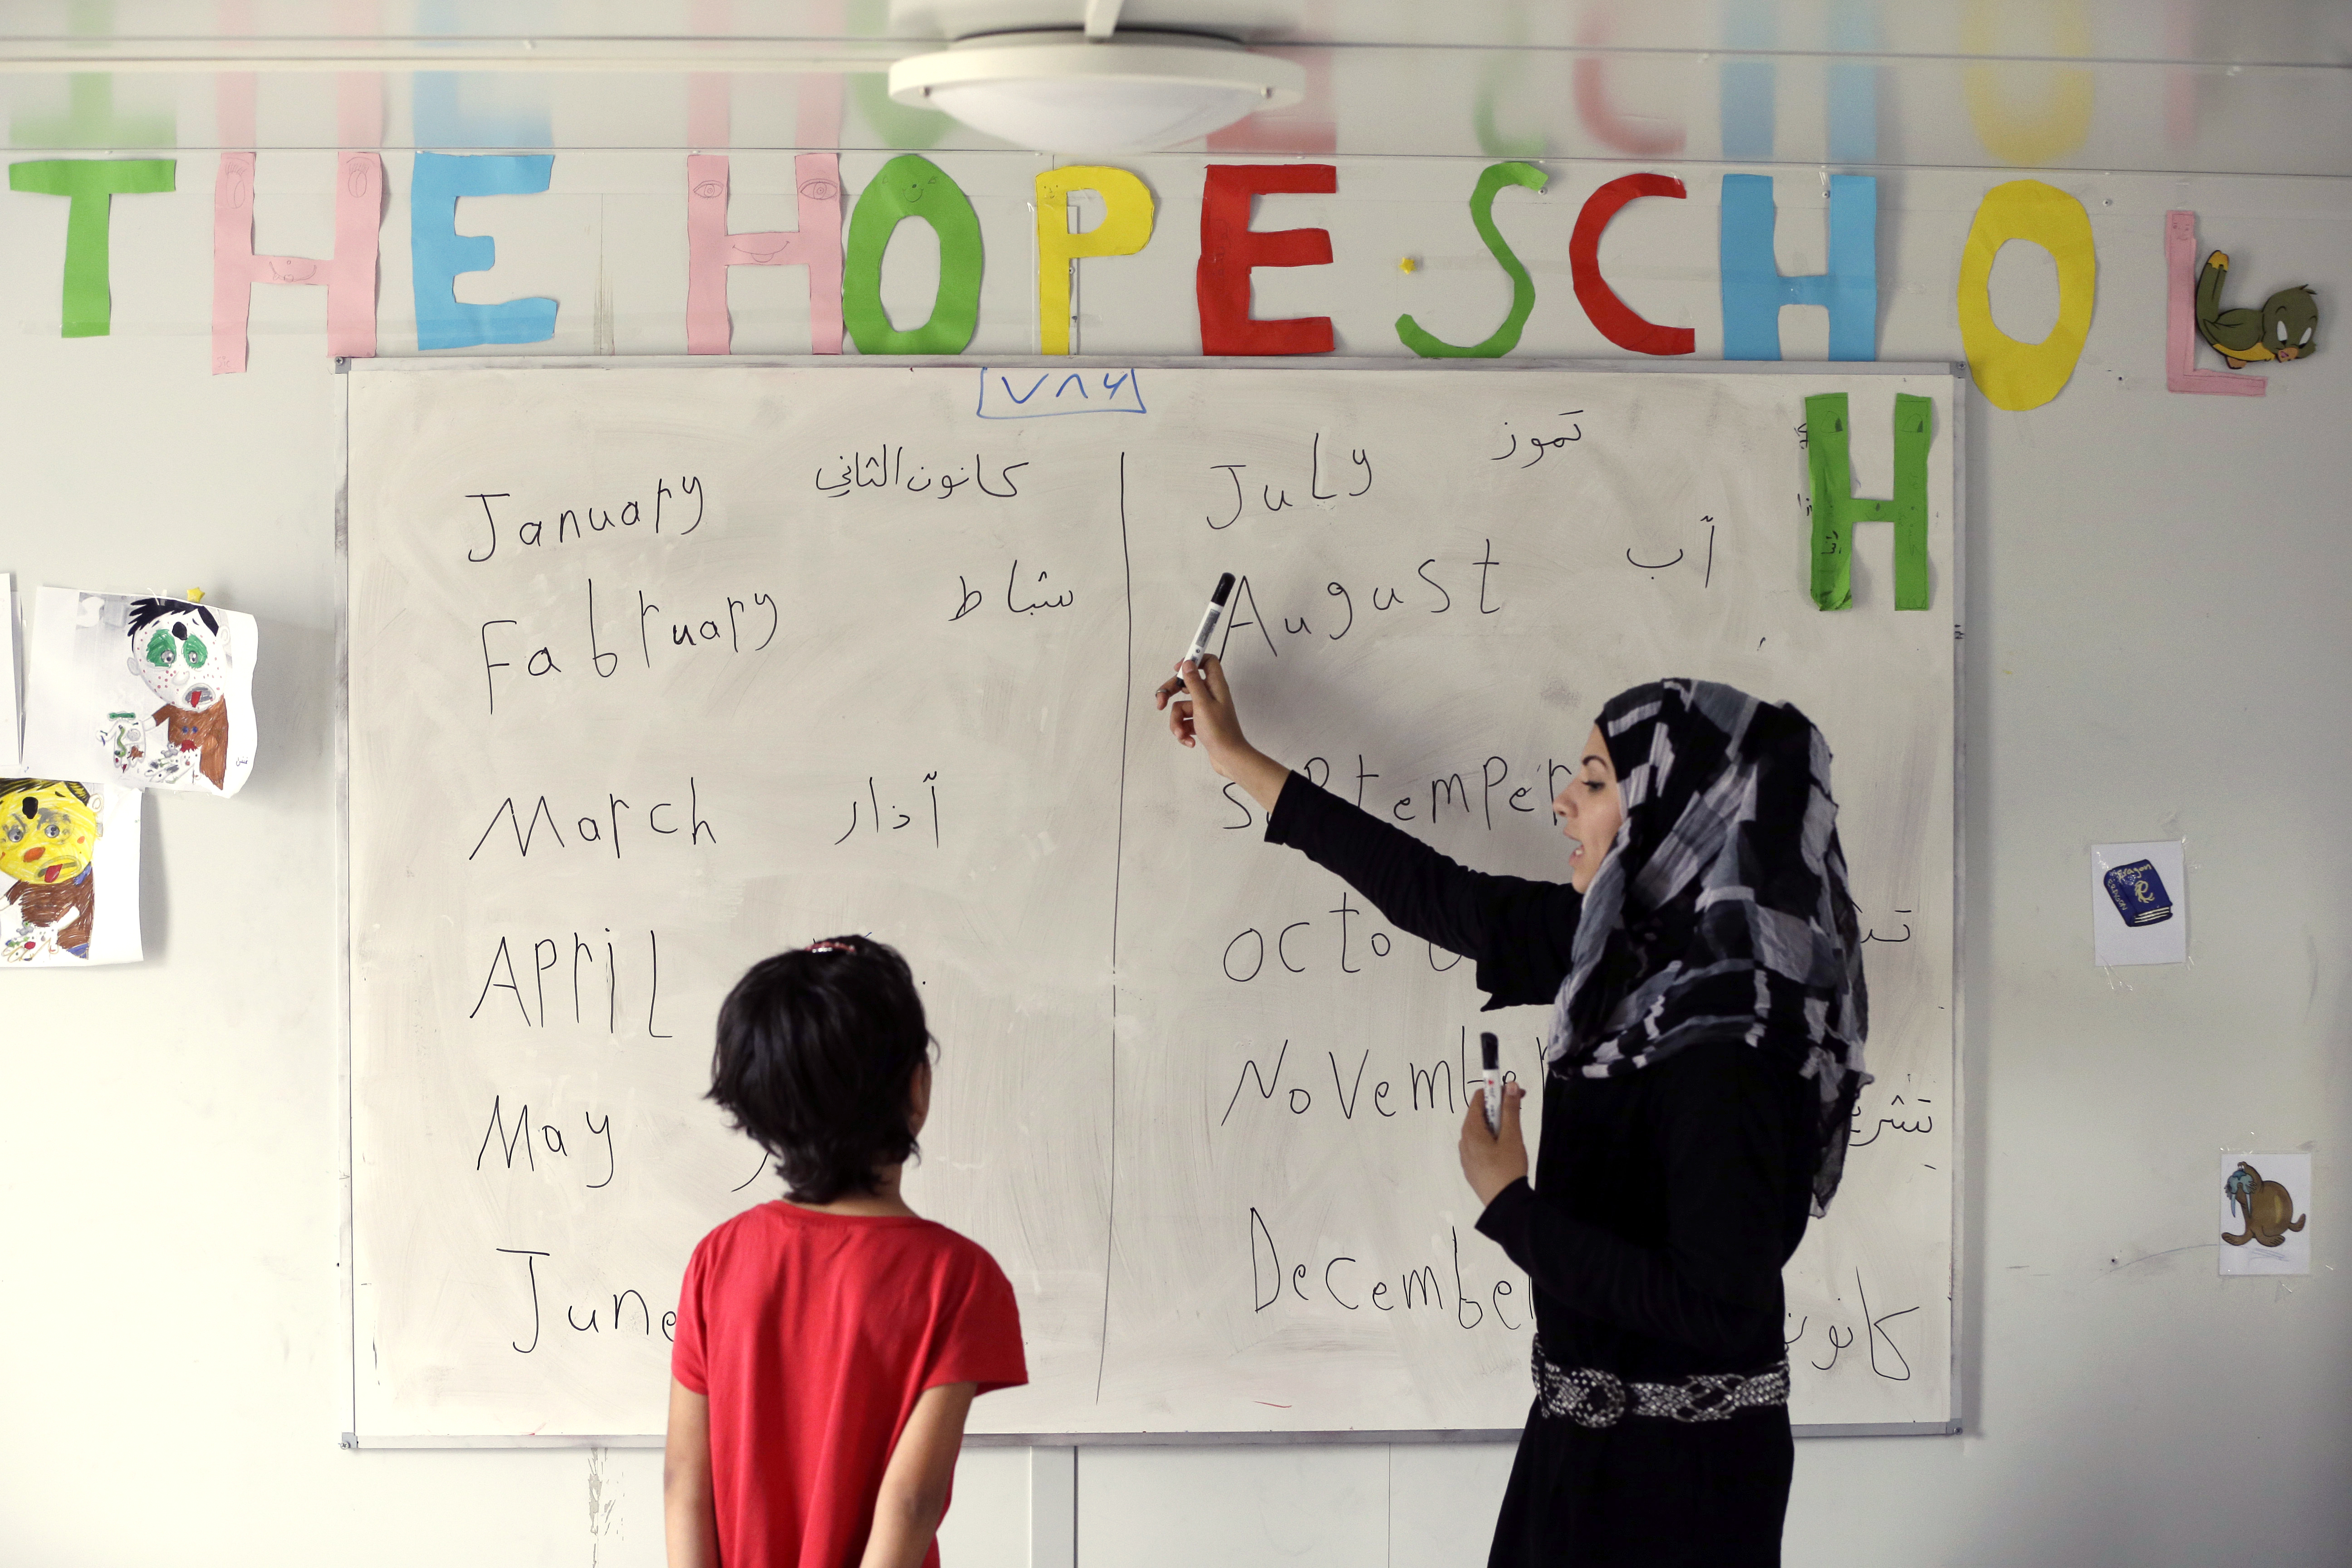 THE HOPE SCHOL
٧٨٤
H
January كانون الثاني
Fabruary شباط
March آذار
APriL
May
June
JuLy تموز
August آب
sePtemPer
octo
November تشري
December كانون